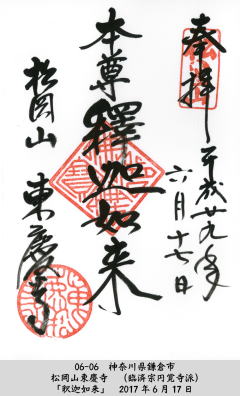 奉拝
平成廿九年
六月十七日
本尊
釋迦如来
松岡山
東慶寺
06-06　神奈川県鎌倉市
松岡山東慶寺　（臨済宗円覚寺派）
「釈迦如来」　2017年6月17日